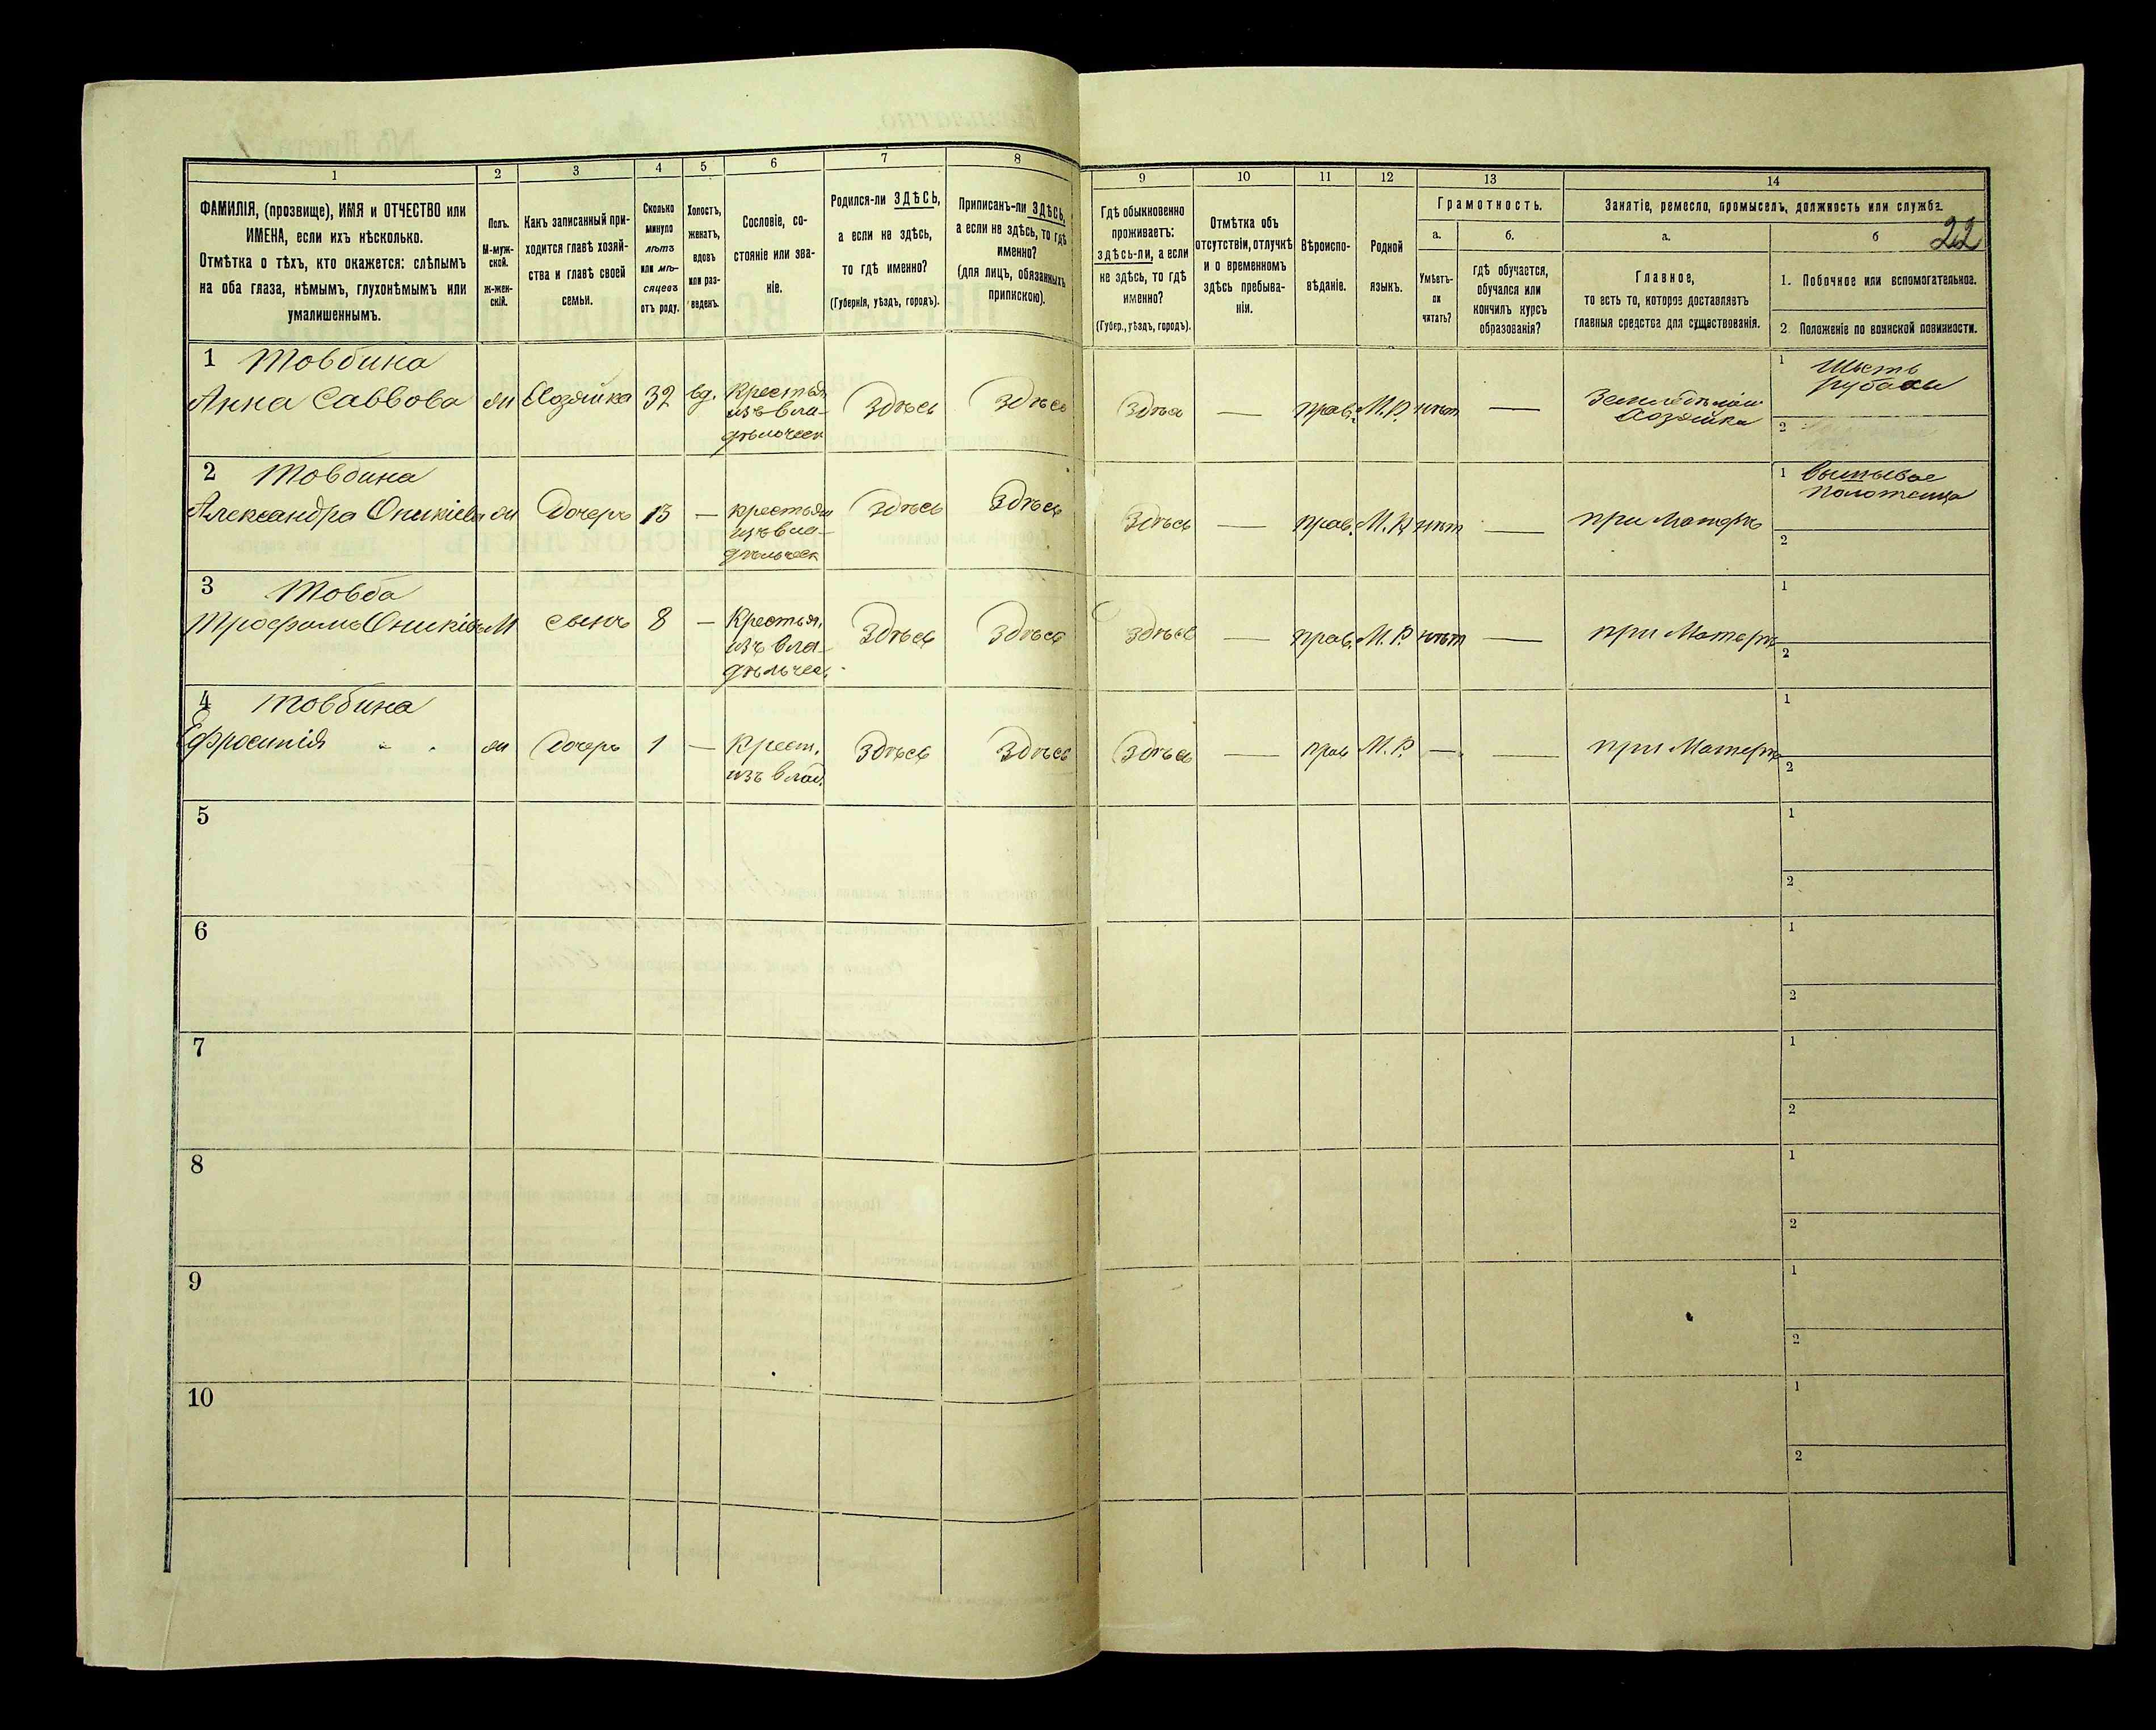 1 2 3 4 5 6 7 8 9 10 11 12 13 14
ФАМИЛІЯ, (прозвище), ИМЯ и ОТЧЕСТВО или
ИМЕНА, если ихъ нѣсколько.
Отмѣтка о тѣхъ, кто окажется: слѣпымъ
на оба глаза, нѣмымъ, глухонѣмымъ или
умалишеннымъ.
Полъ.
М-муж-
ской.
Ж-жен-
скій.
Какъ записанный при-
ходится главѣ хозяй-
ства и главѣ своей
семьи.
Сколько
минуло
лѣтъ
или мѣ-
сяцевъ
отъ роду.
Холостъ,
женатъ,
вдовъ
или раз-
веденъ.
Сословіе, со-
стояніе или зва-
ніе.
Родился-ли ЗДѢСЬ,
а если не здѣсь,
то гдѣ именно?
(Губернія, уѣздъ, городъ).
Приписанъ-ли ЗДѢСЬ,
а если не здѣсь, то гдѣ
именно?
(для лицъ, обязанныхъ
припискою).
Гдѣ обыкновенно
проживаетъ:
здѣсь-ли, а если
не здѣсь, то гдѣ
именно?
(Губер., уѣздъ, городъ).
Отмѣтка объ
отсутствіи, отлучкѣ
и о временномъ
здѣсь пребыва-
ніи.
Вѣроиспо-
вѣданіе.
Родной
языкъ.
Грамотность.
а.
Умѣетъ-
ли
читать?
б.
гдѣ обучается,
обучался или
кончилъ курсъ
образованія?
Занятіе, ремесло, промыселъ, должность или служба.
а.
Главное,
то есть то, которое доставляетъ
главныя средства для существованія.
б 22
1. Побочное или вспомогательное.
2. Положеніе по воинской повинности.
1 Товбина
Анна Саввова
ж
Хозяйка
32
вд.
Крестьян
изъ вла-
дѣльческ
Здѣсь
Здѣсь
Здѣсь
—
прав.
М.Р.
нѣт
—
Хозяйка
1 Шьеть
рубахи
2
2 Товбина
Александра Оникіева
ж
Дочерь
13
—
крестьян
изъ вла-
дѣльческ
Здѣсь
Здѣсь
Здѣсь
—
прав.
М.Р.
нѣт
—
при Матерѣ
1
2
3 Товба
Трофимъ Оникіевъ
М
сынъ
8
—
Крестьян.
изъ вла-
дѣльчес.
Здѣсь
Здѣсь
Здѣсь
—
прав.
М.Р.
нѣт
—
при Матерѣ
1
2
4 Товбина
Ефросинія
ж
Дочерь
1
—
Крест.
изъ влад.
Здѣсь
Здѣсь
Здѣсь
—
прав
М.Р.
—
—
при Матерѣ
1
2
5
1
2
6
1
2
7
1
2
8
1
2
9
1
2
10
1
2